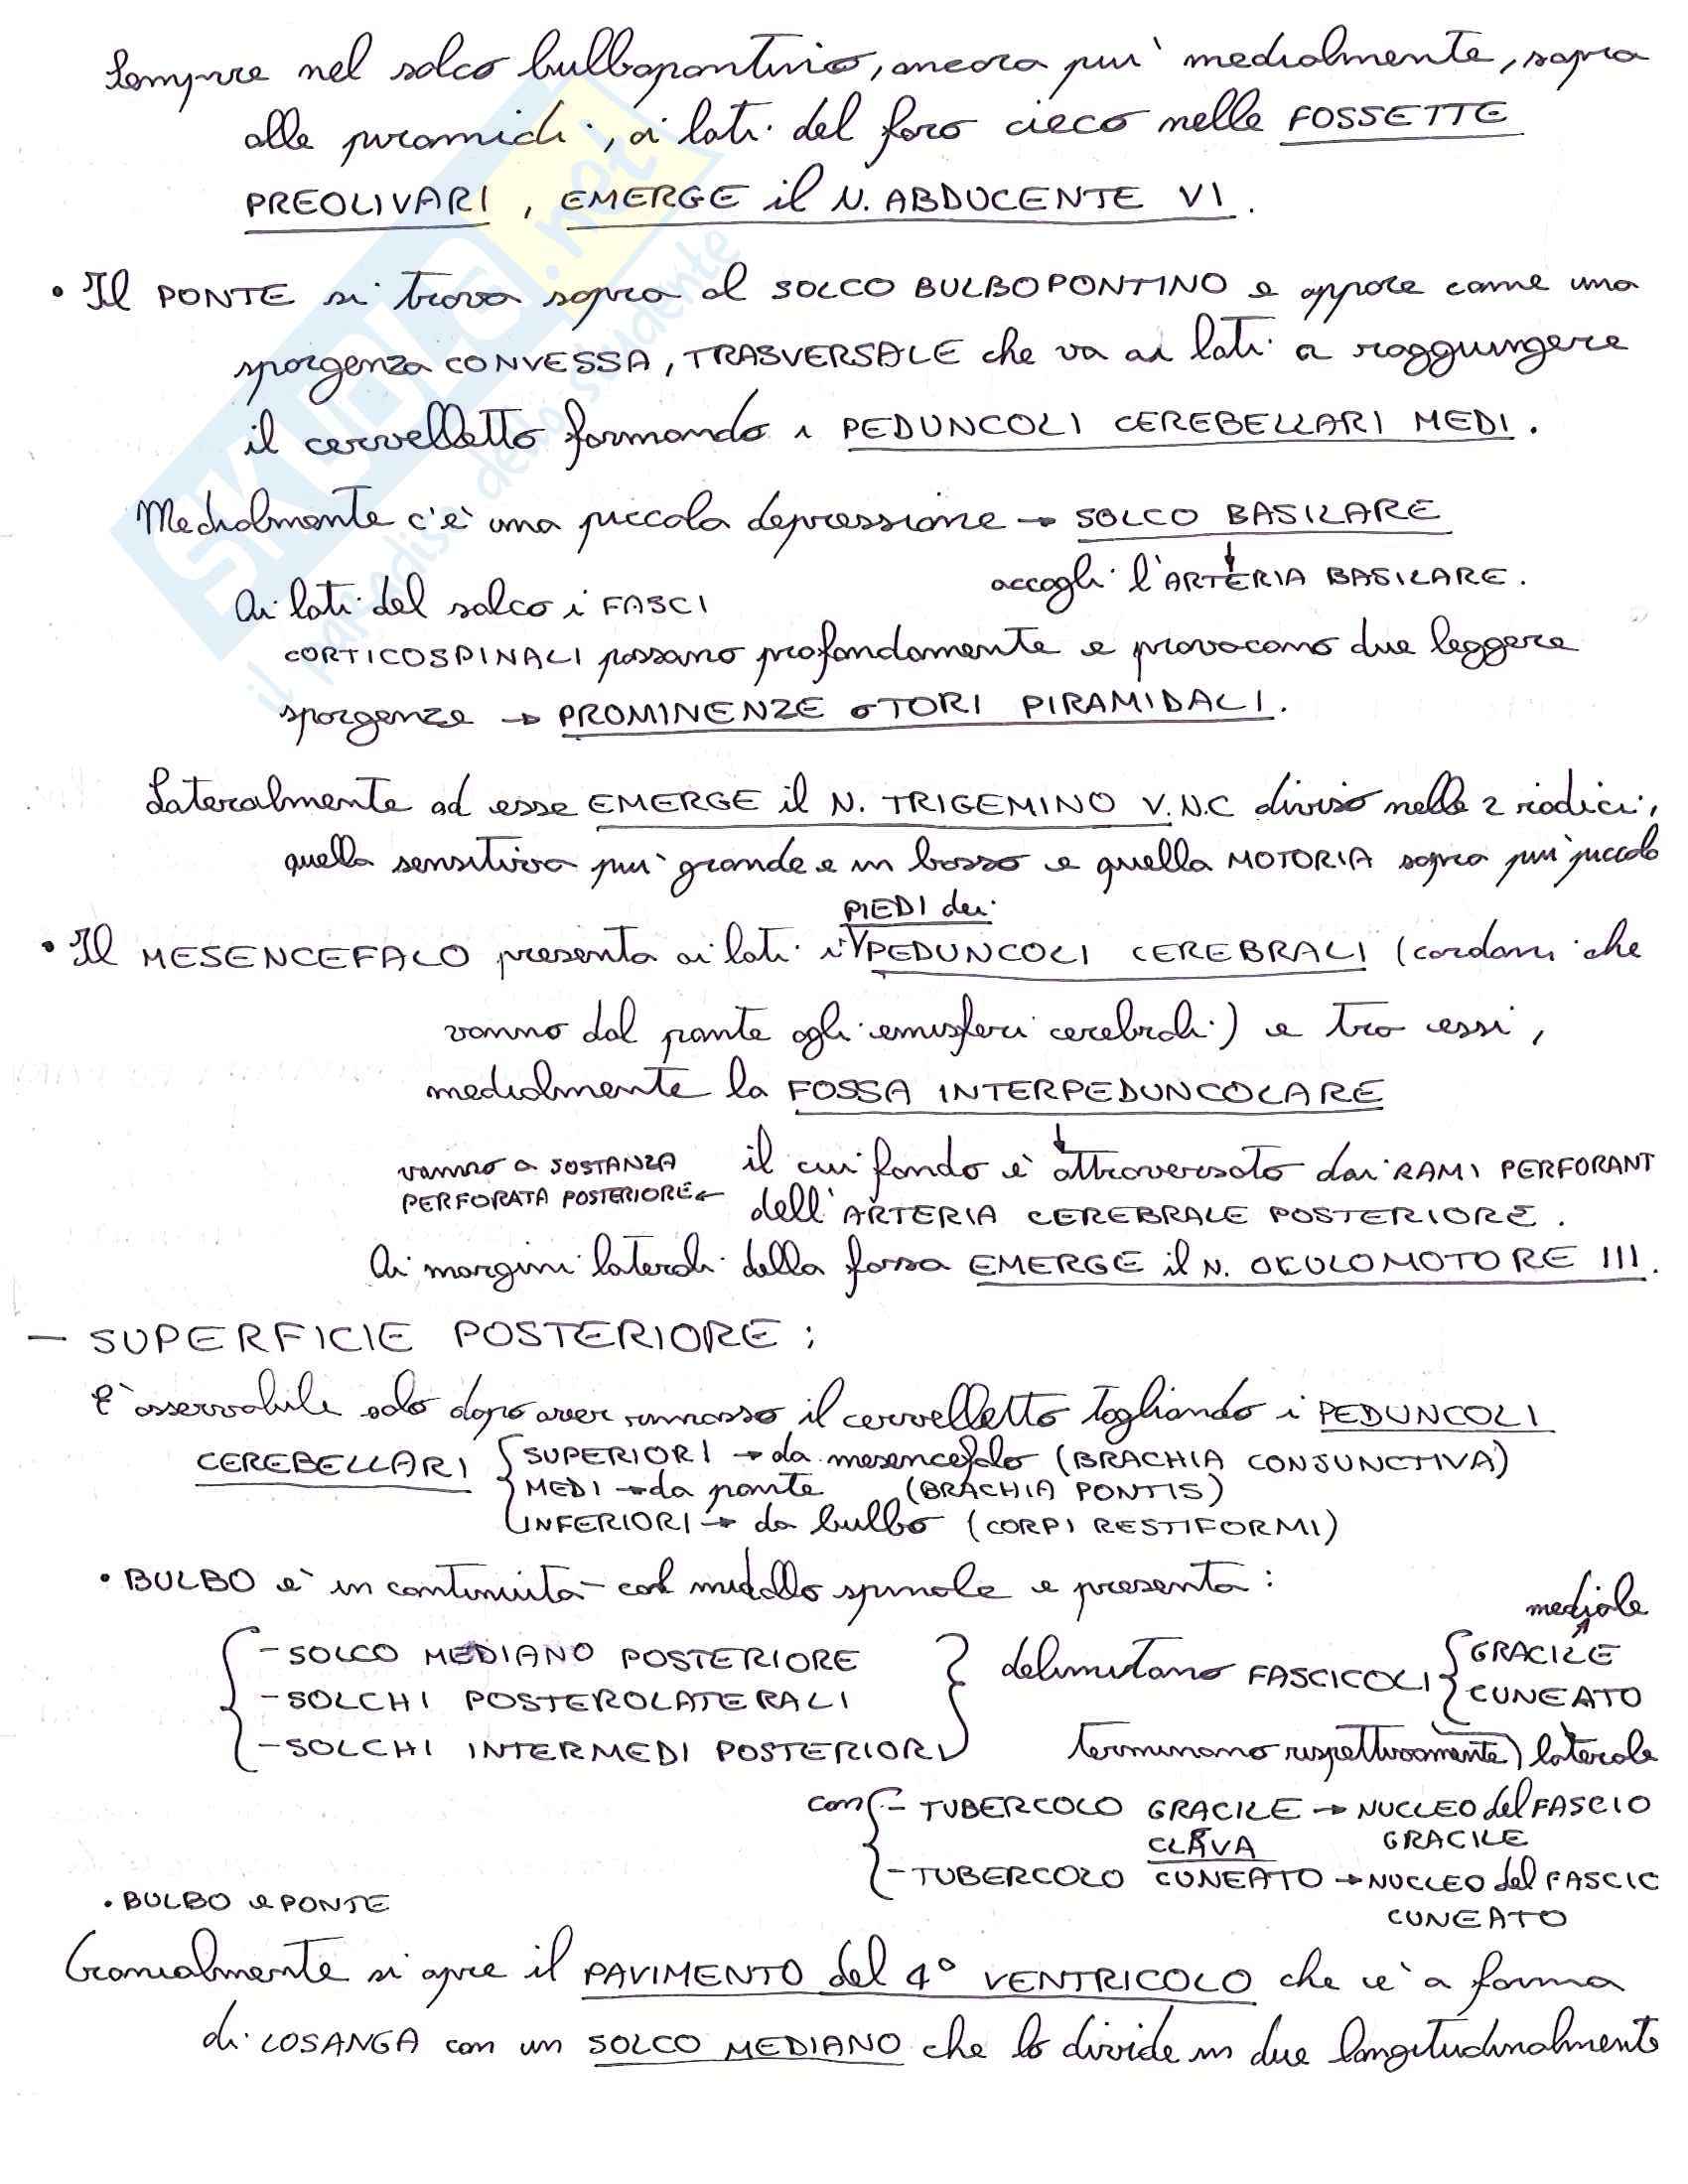 Sempre nel solco bulbopontino, ancora più medialmente, sopra
alle piramidi, ai lati del foro cieco nelle FOSSETTE
PREOLIVARI, EMERGE il N. ABDUCENTE VI.
• Il PONTE si trova sopra al SOLCO BULBOPONTINO e appare come una
sporgenza CONVESSA, TRASVERSALE che va ai lati a raggiungere
il cervelletto formando i PEDUNCOLI CEREBELLARI MEDI.
Medialmente c'è una piccola depressione → SOLCO BASILARE
↓
accogli l'ARTERIA BASILARE.
Ai lati del solco i FASCI
CORTICOSPINALI passano profondamente e provocano due leggere
sporgenze → PROMINENZE o TORI PIRAMIDALI.
Lateralmente ad esse EMERGE il N. TRIGEMINO V. N.C diviso nelle 2 radici,
quella sensitiva più grande e in basso e quella MOTORIA sopra più piccola
PIEDI dei
• Il MESENCEFALO presenta ai lati i PEDUNCOLI CEREBRALI (cordoni che
vanno dal ponte agli emisferi cerebrali) e tra essi,
medialmente la FOSSA INTERPEDUNCOLARE
↓
il cui fondo è attraversato dai RAMI PERFORANT
vanno a SOSTANZA
PERFORATA POSTERIORE ←
dell'ARTERIA CEREBRALE POSTERIORE.
Ai margini laterali della fossa EMERGE il N. OCULOMOTORE III.
— SUPERFICIE POSTERIORE:
E' osservabile solo dopo aver rimosso il cervelletto togliando i PEDUNCOLI
CEREBELLARI { SUPERIORI → da mesencefalo (BRACHIA CONJUNCTIVA)
MEDI → da ponte (BRACHIA PONTIS)
INFERIORI → da bulbo (CORPI RESTIFORMI)
• BULBO è in continuità col midollo spinale e presenta:
mediale
{ - SOLCO MEDIANO POSTERIORE
- SOLCHI POSTEROLATERALI
- SOLCHI INTERMEDI POSTERIORI }
delimitano FASCICOLI { GRACILE
CUNEATO
terminano rispettivamente laterale
con { - TUBERCOLO GRACILE → NUCLEO del FASCIO
CLAVA GRACILE
- TUBERCOLO CUNEATO → NUCLEO del FASCIO
CUNEATO
• BULBO e PONTE
Cranialmente si apre il PAVIMENTO del 4° VENTRICOLO che è a forma
di LOSANGA con un SOLCO MEDIANO che lo divide in due longitudinalmente
SKUOLA.net
il paradiso dello studente